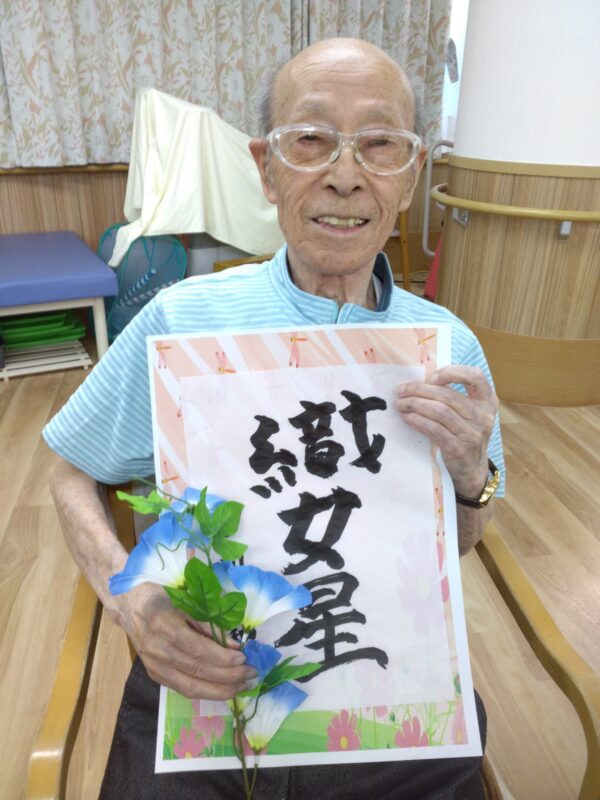 織女星